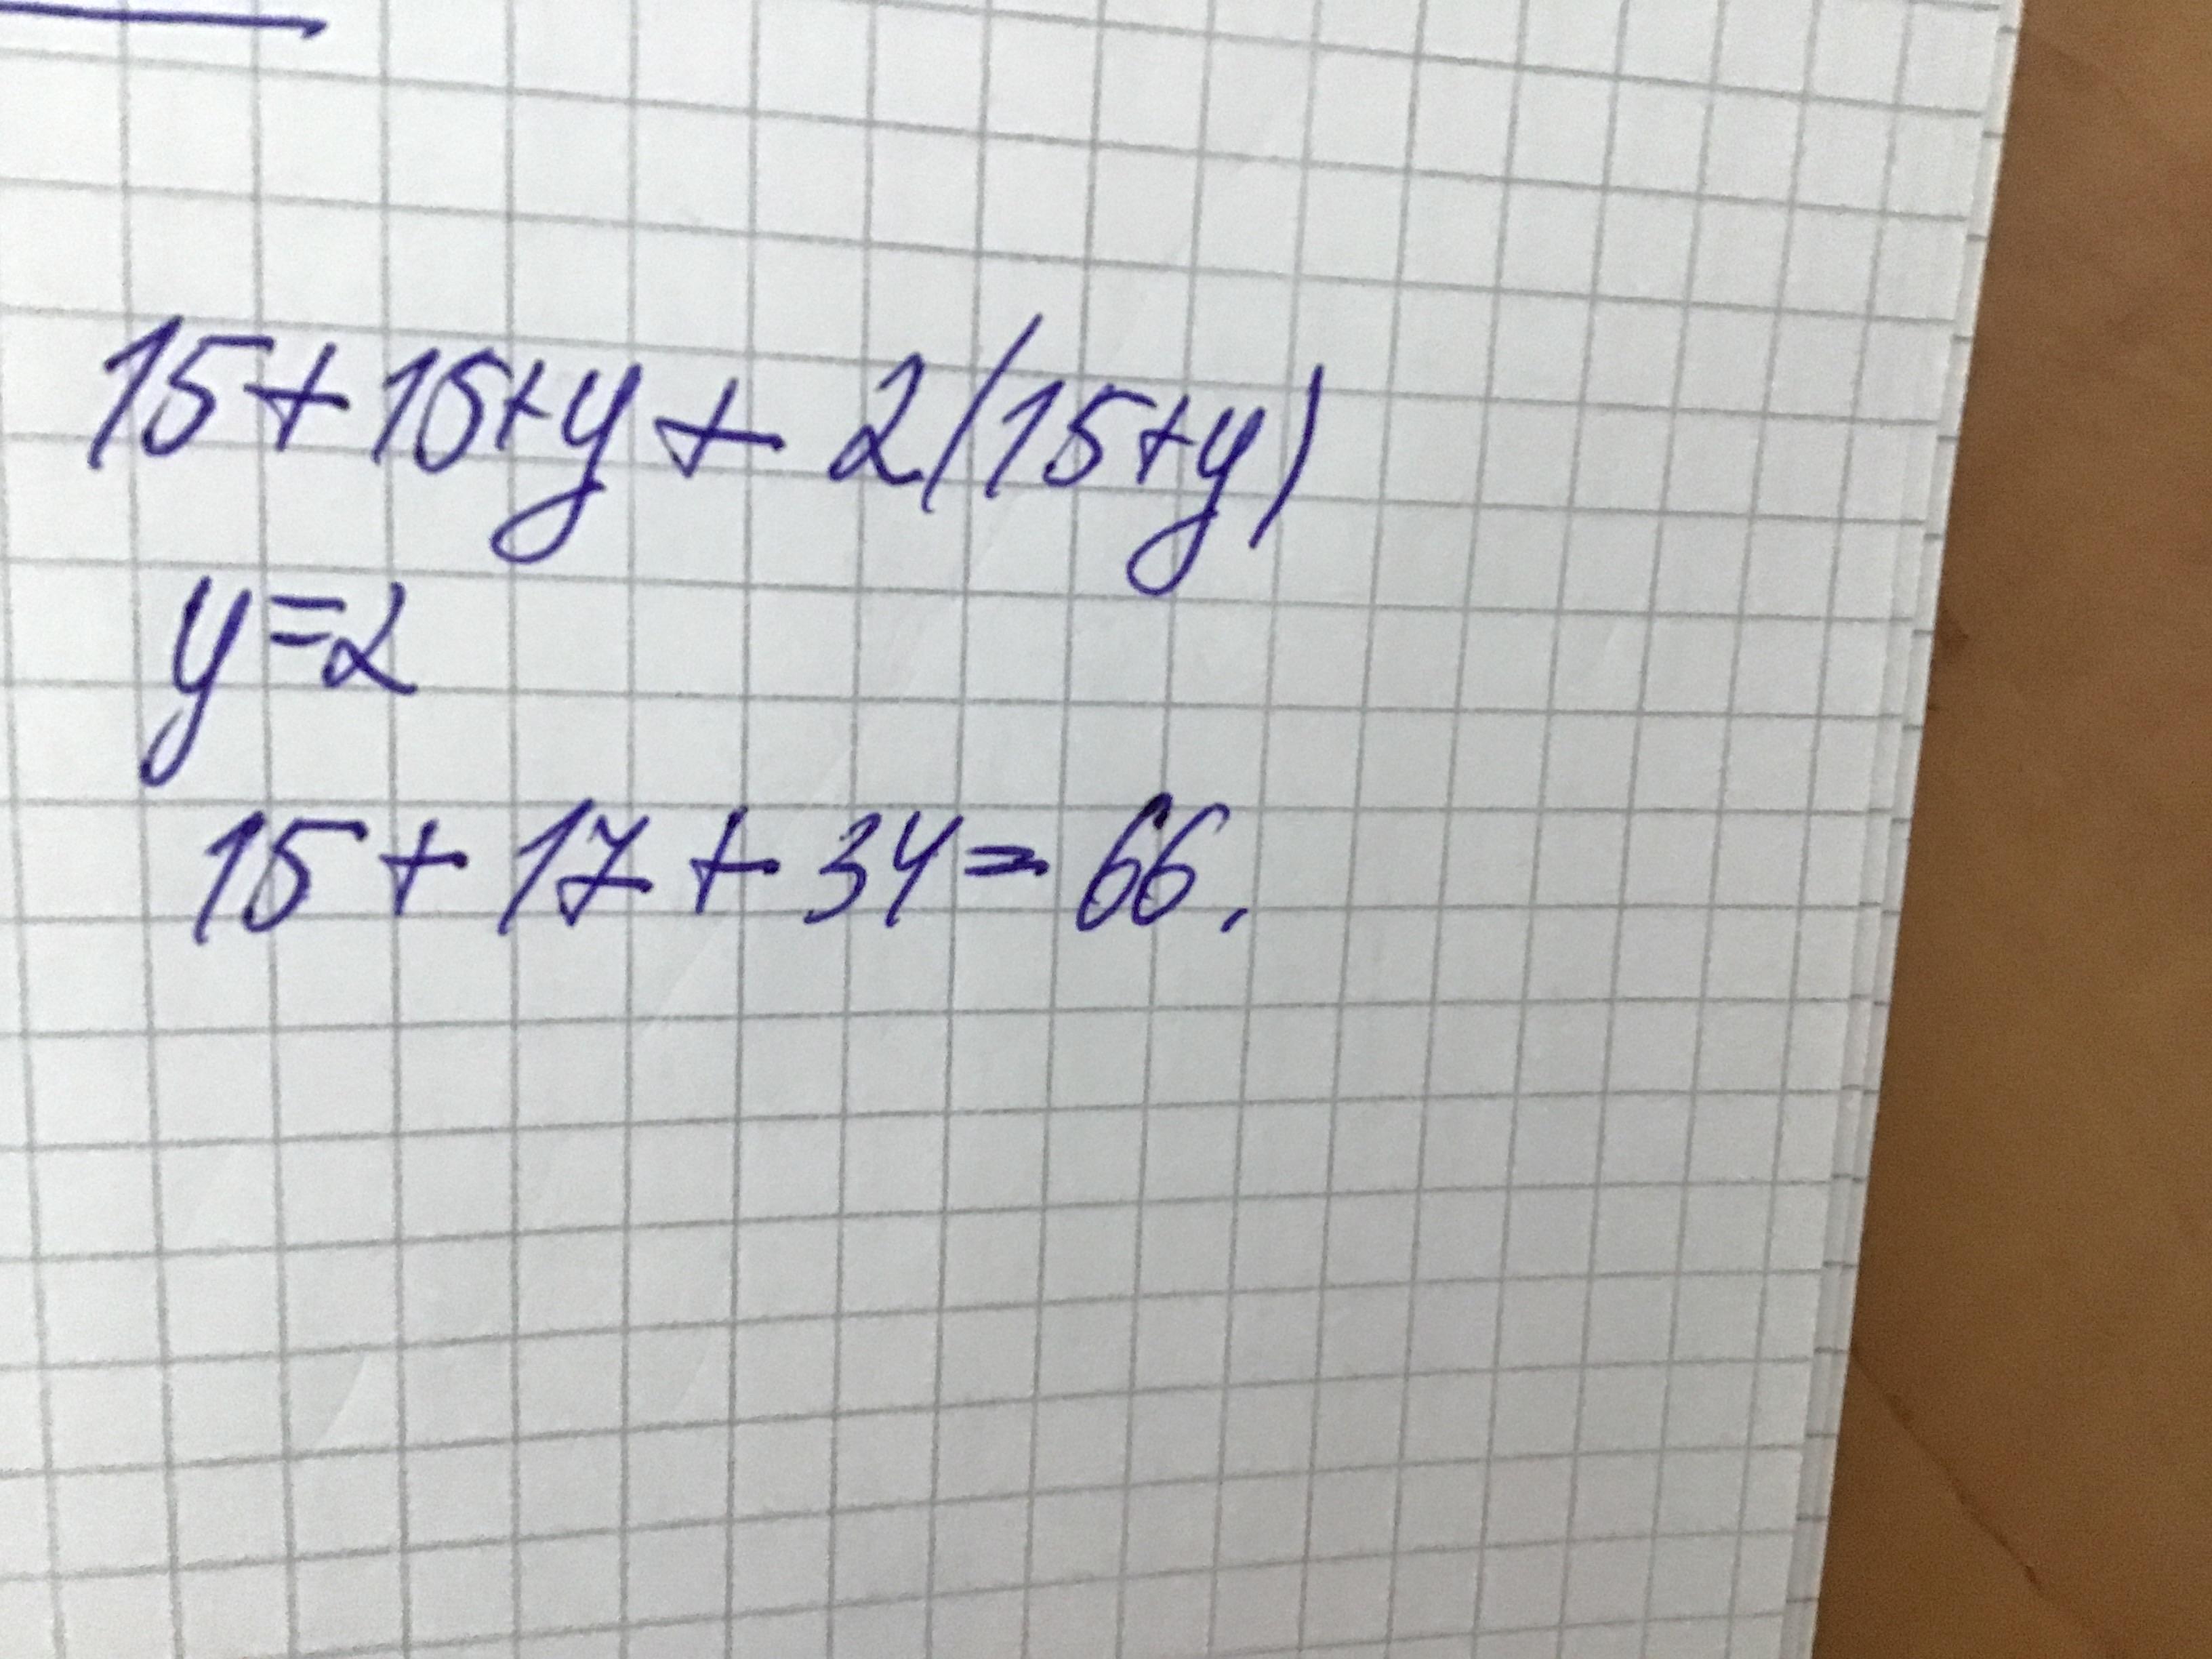 15+15+y+2(15+y)
y=2
15+17+34=66.